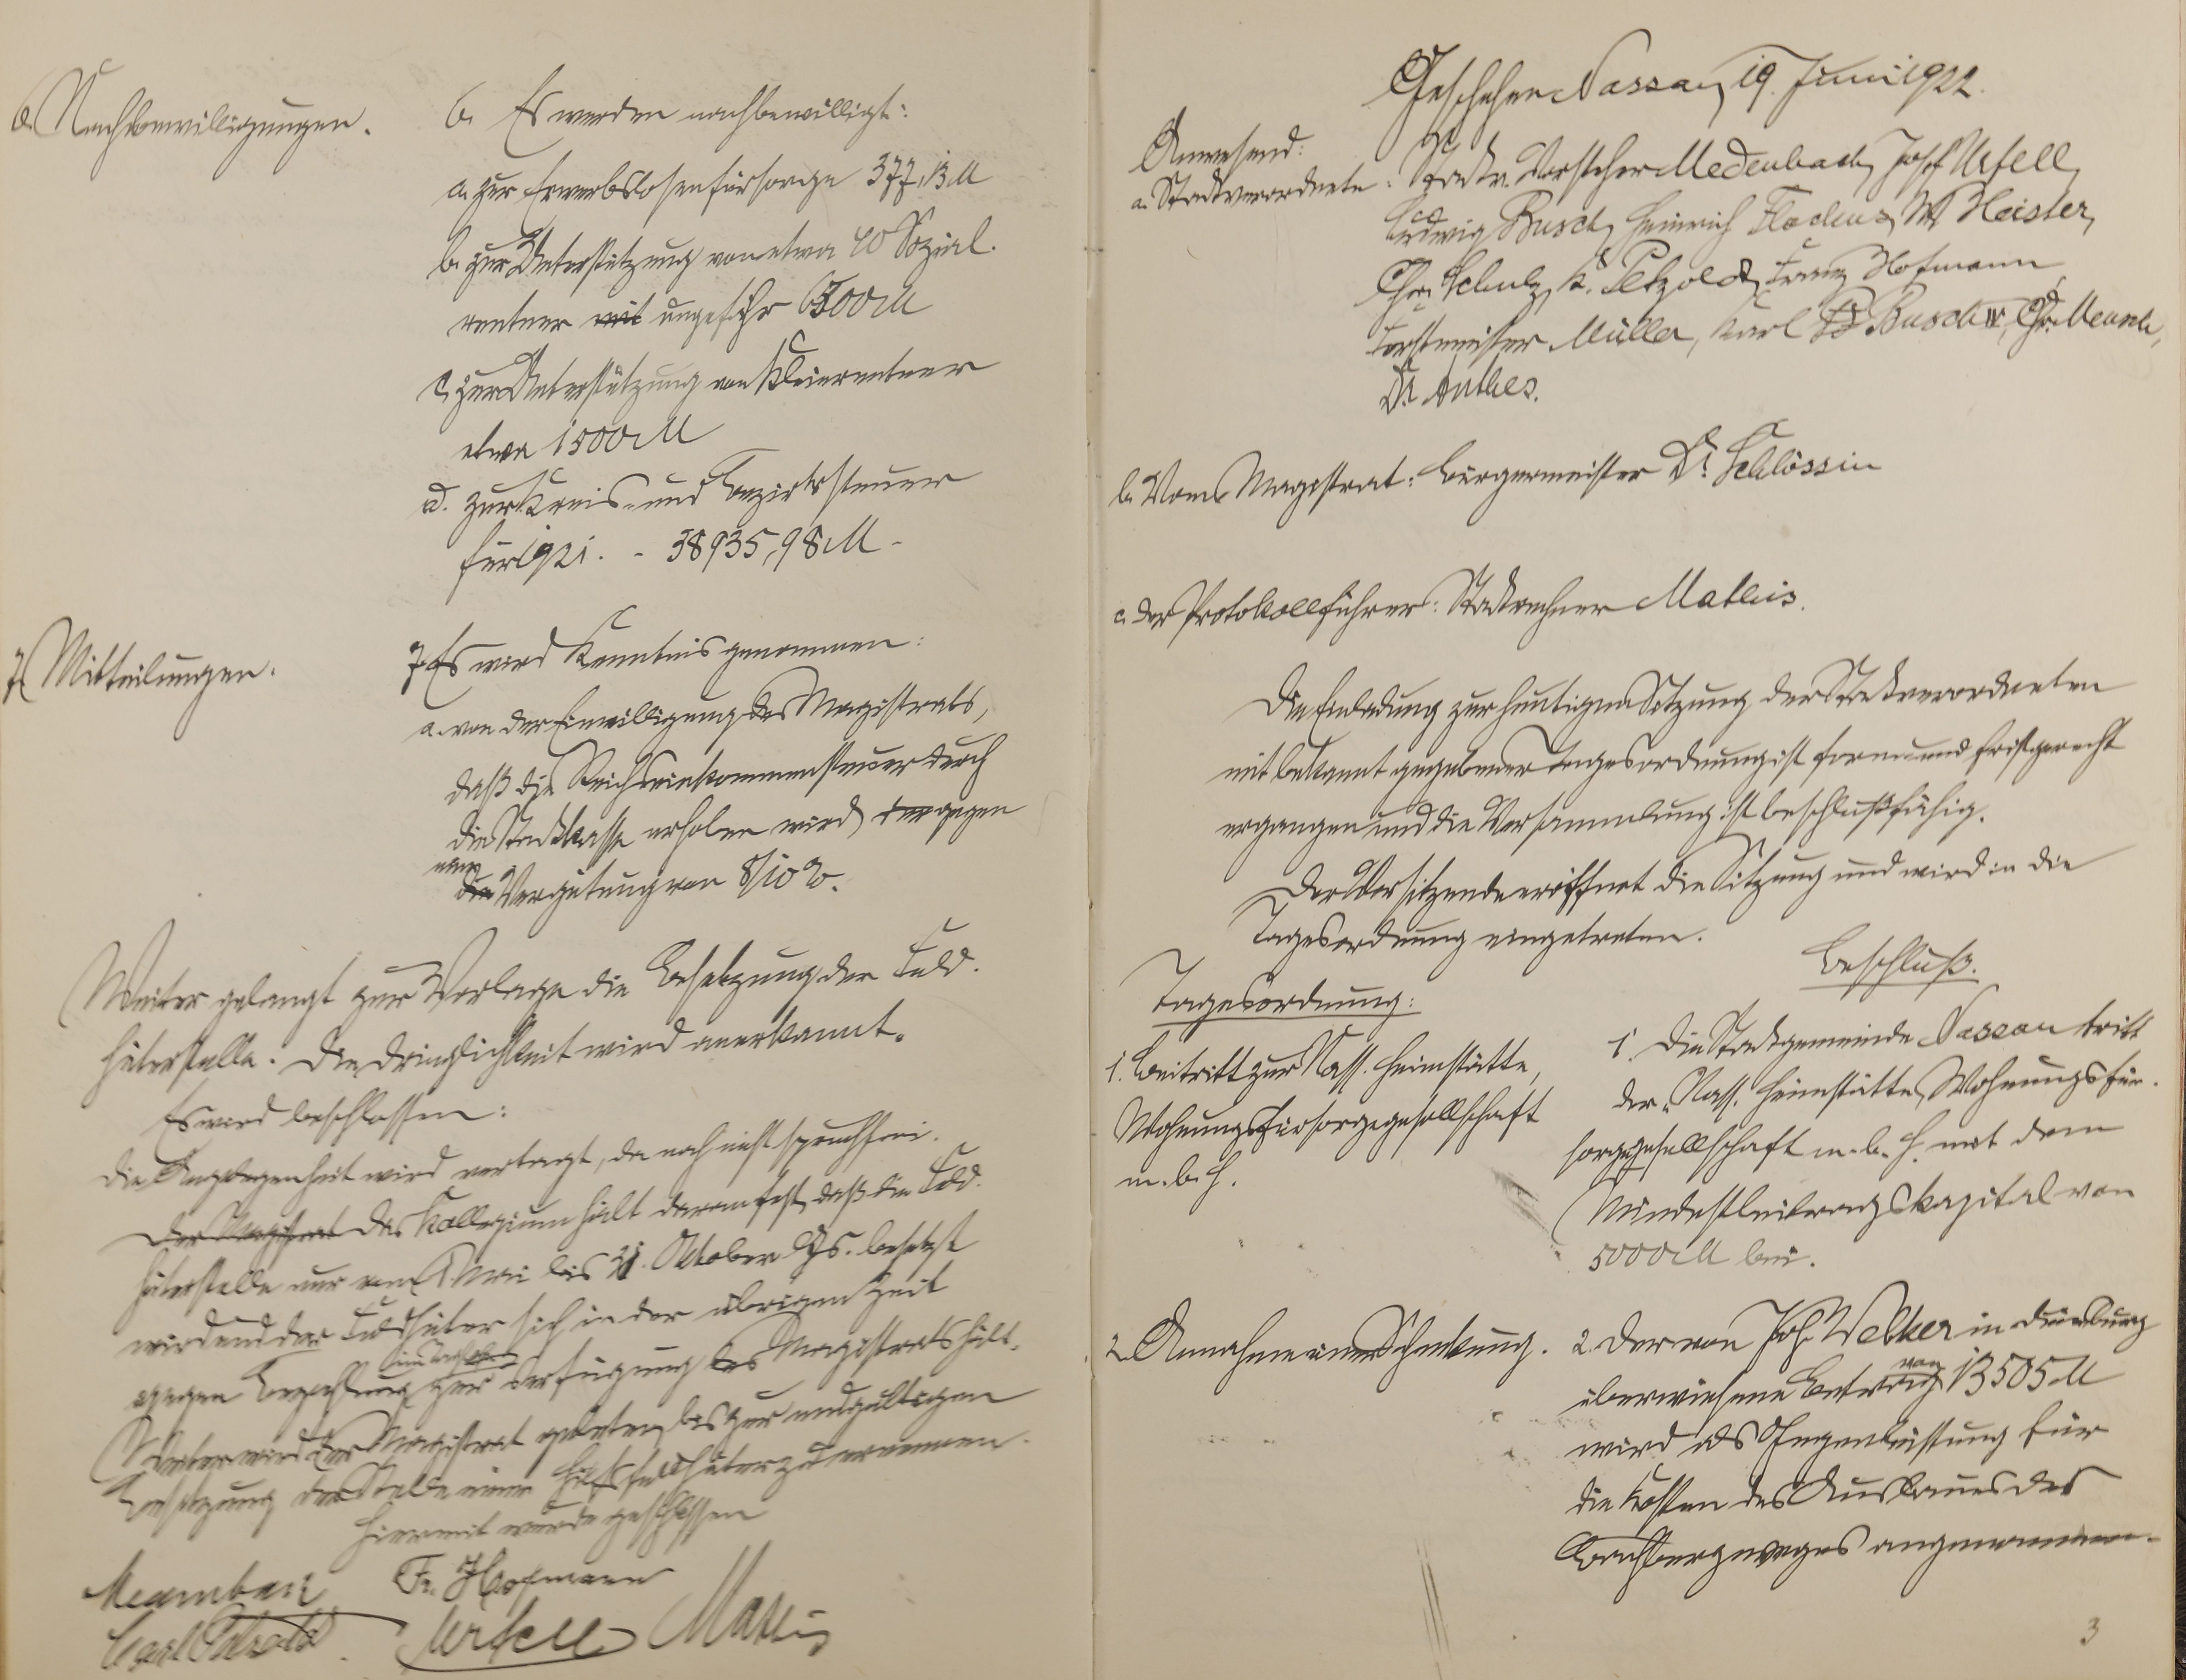 6. Nachbewilligungen.
6. Es werden nachbewilligt:
a. zur Erwerbslosenfürsorge 377,13 M
b. zur Unterstützung von etwa 40 Sozial-
rentner mit ungefähr 6500 M
c. zur Unterstützung von Kleinrentner
etwa 1500 M
d. zur Kreis- und Bezirkssteuer
für 1921. - 38935,98 M -
7. Mitteilungen.
7. Es wird Kenntnis genommen:
a. von der Einwilligung des Magistrats,
daß die Reichseinkommensteuer durch
die Stadtkasse erhoben wird gegen
eine
die Vergütung von 8/10 %.
Weiter gelangt zur Vorlage die Besetzung der Feld-
hüterstelle. Die Dringlichkeit wird anerkannt.
Es wird beschlossen:
Die Angelegenheit wird vertagt, da noch nicht spruchfrei.
Der Magistrat Das Kollegium hält daran fest, daß die Feld-
hüterstelle nur vom 1. Mai bis 31. Oktober Js. besetzt
wird und der Feldhüter sich in der übrigen Zeit
gegen Bezahlung zur Verfügung des Magistrats hält.
Weiter wird der Magistrat gebeten, bis zur endgültigen
Besetzung der Stelle einen Hilfsfeldhüter zu ernennen.
Hiermit wurde geschlossen
Fr. Hofmann
Carl Petzold. Urfell Mathis
Geschehen Nassau, 19. Juni 1922.
Anwesend:
a. Stadtverordnete: Stadtv. Vorsteher Medenbach, Josef Urfell,
Ludwig Busch, Heinrich Fladens, W. Heister,
Chr. Schulz, K. Petzold, Franz Hofmann,
Forstmeister Müller, Karl Busch IV, Chr. Meusch,
Dr. Anthes.
b. Vom Magistrat: Bürgermeister Dr. Schlössin
c. der Protokollführer: Stadtrechner Mathis.
Die Einladung zur heutigen Sitzung der Stadtverordneten
mit bekannt gegebener Tagesordnung ist form- und fristgerecht
ergangen und die Versammlung ist beschlußfähig.
Der Vorsitzende eröffnet die Sitzung und wird in die
Tagesordnung eingetreten.
Beschluß.
Tagesordnung:
1. Beitritt zur Nass. Heimstätte,
Wohnungsfürsorgegesellschaft
m.b.H.
1. Die Stadtgemeinde Nassau tritt
der Nass. Heimstätte, Wohnungsfür-
sorgegesellschaft m.b.H. mit dem
Mindestbeitragskapital von
5000 M bei.
2. Annahme einer Schenkung.
2. Der von Joh. Welker in Duisburg
von
überwiesene Betrag 13505 M
wird als Gegenleistung für
die Kosten des Ausbaues des
angenommen.
3